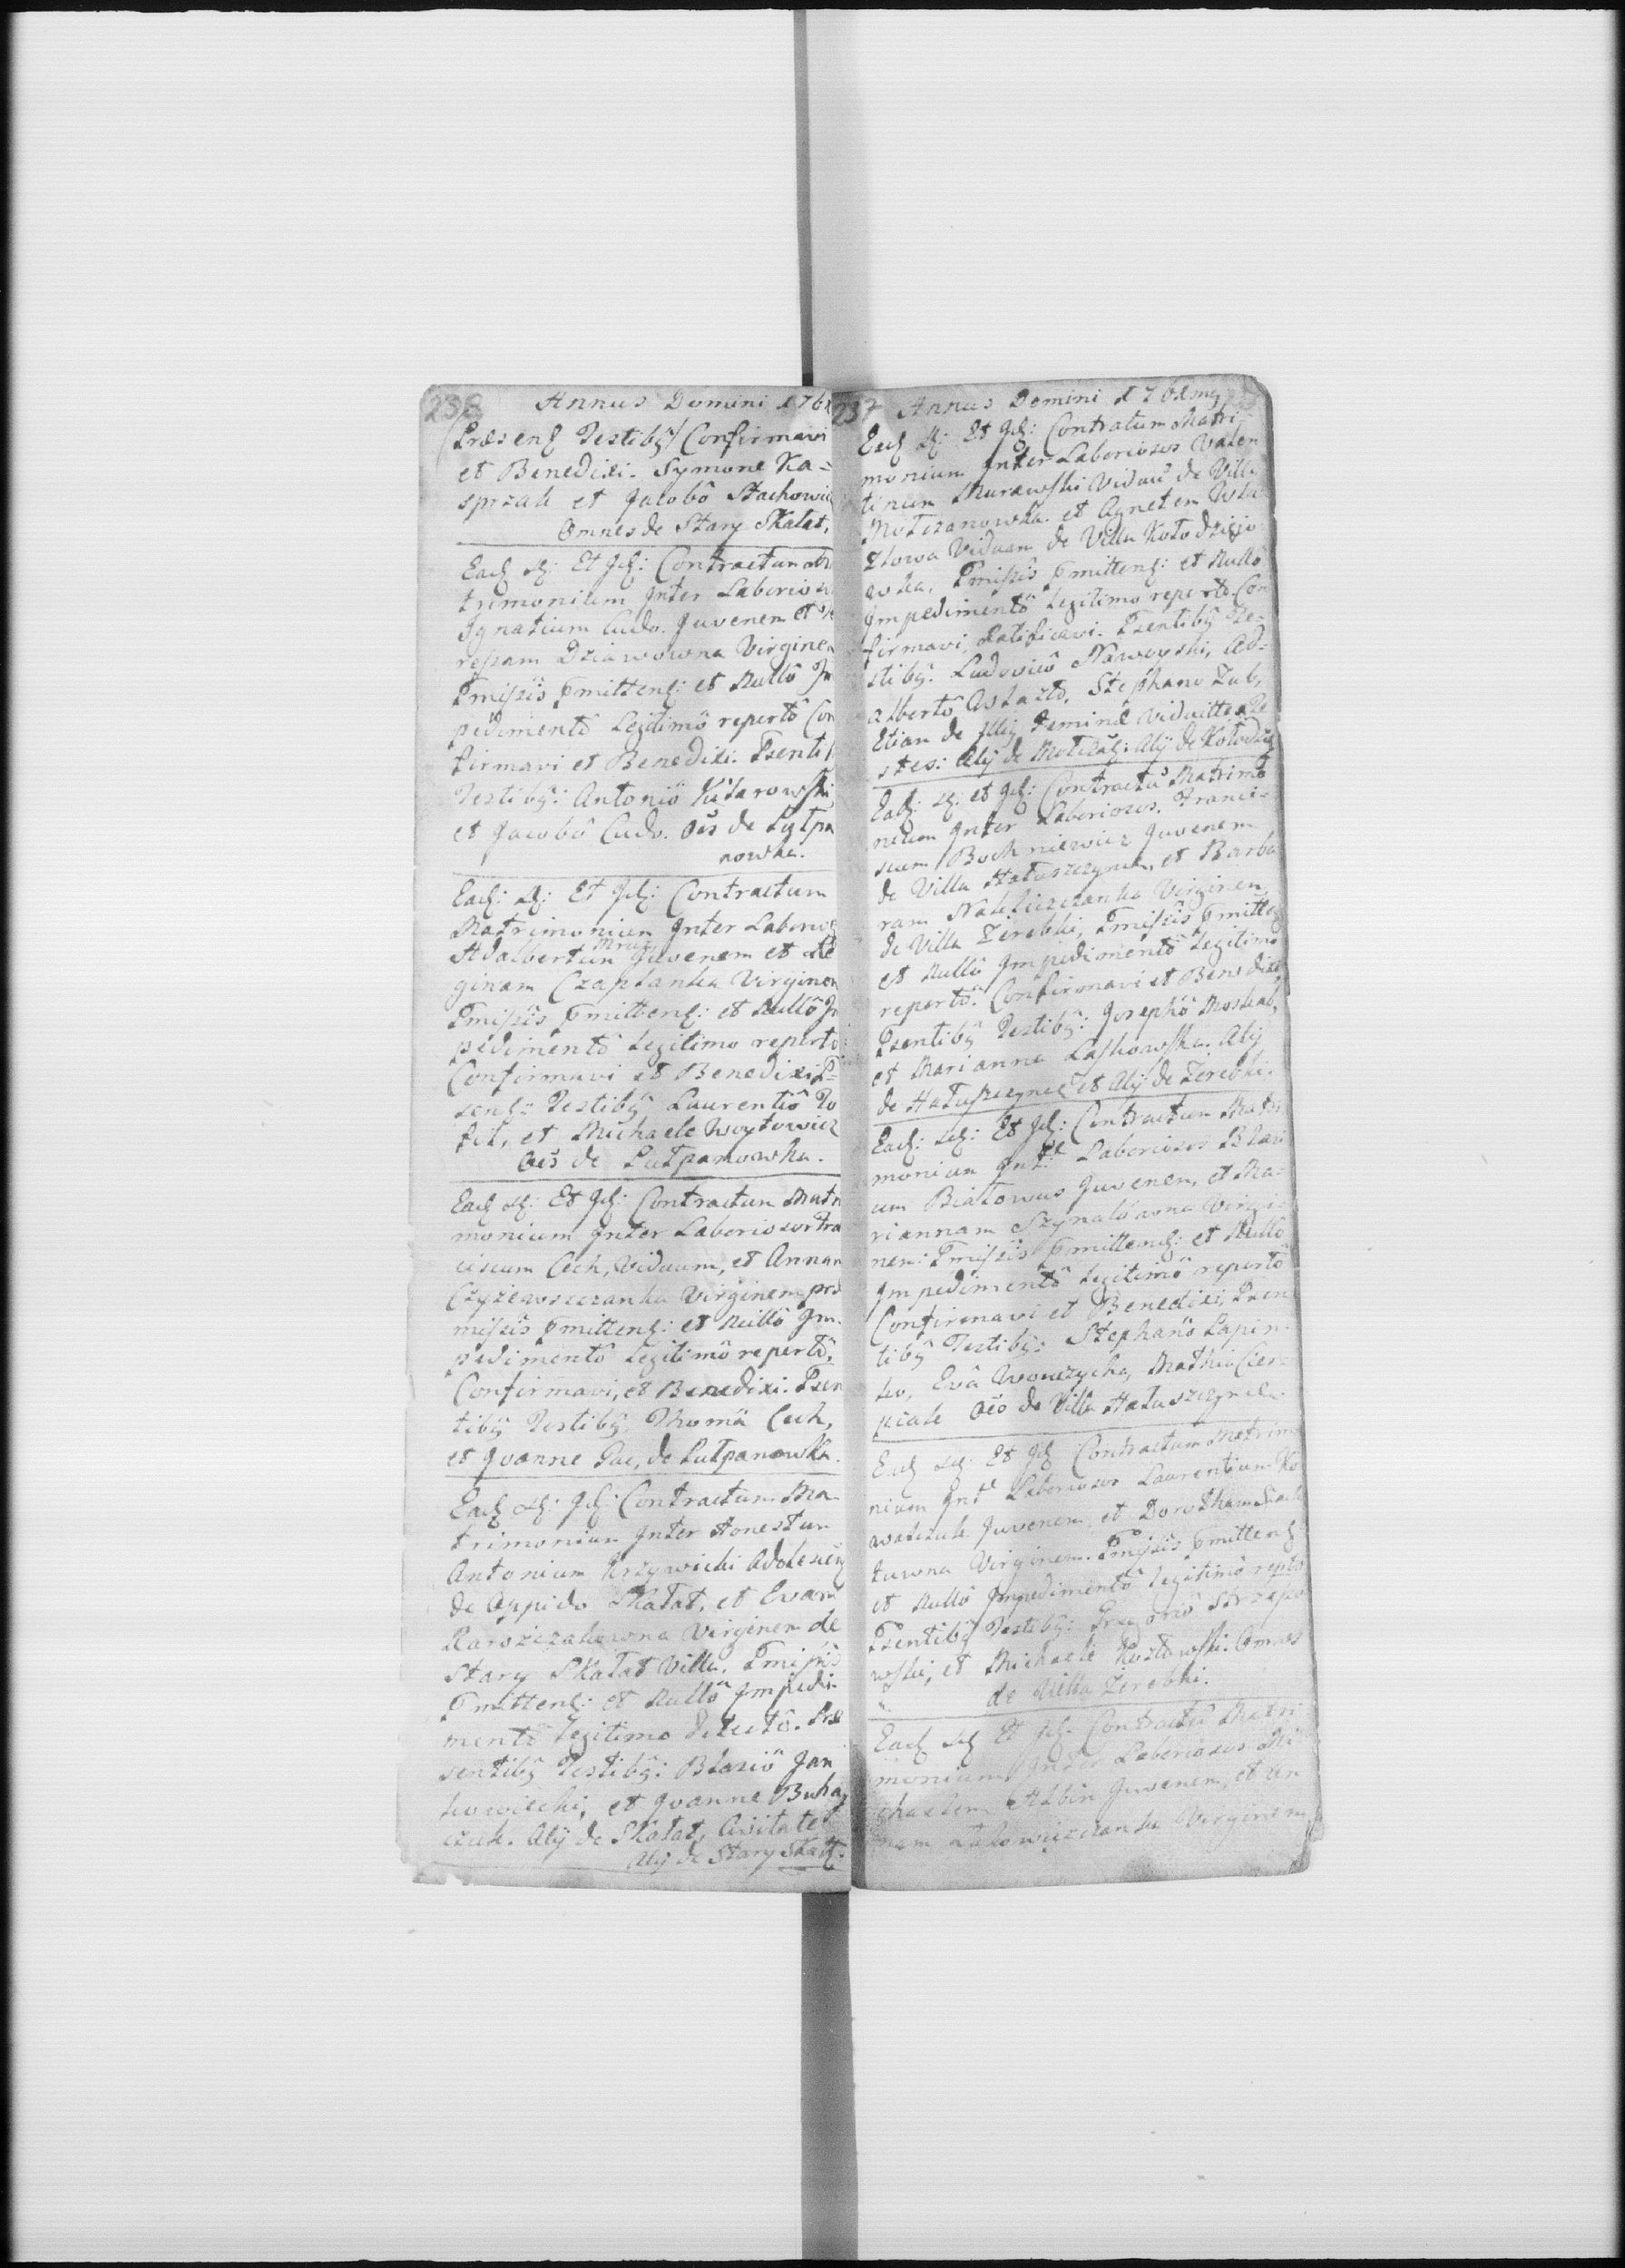 238 Annus Domini 176
Præsenq Testibq Confirmavi
et Benedixi. Symone Ka=
sprzak et Jacobô Stachowic
Omnes de Stary Skałat.
Eadq dq: Et Jdq: Contractum
trimonium Jnter Laborios
Jgnatium Cudo. Juvenem et
resiam Dziawowna Virginem
Pmissis pmittenq: et Nullô Jm
pedimentô Legitimô repertô Con
firmavi et Benedixi. Psenti
Testibq: Antoniô Kitarowski,
et Jacobô Cudo. Oēs de Lutpa
nowka.
Eadq: dq: Et Jdq: Contractum
Matrimonium Jnter Laborios
Adalbertum Mruz Juvenem et Re
ginam Czaplanka Virginem
Pmissis pmittenq: et Nullô Jm
pedimentô Legitimo repertô
Confirmavi et Benedixi P=
senq= Testibq Laurentiô To
fil, et Michaele Woytowicz
Oēs de Lutpanowka.
Eadq dq: Et Jdq: Contractum Matri
monium Jnter Laboriosos Fra
ciscum Cech, Viduum, et Annam
Czyżewszczanka Virginem præ
missis pmittenq: et Nullô Jm
pedimentô Legitimô repertô,
Confirmavi, et Benedixi. Psen
tibq Testibq. Thomâ Cech,
et Joanne Gac, de Lutpanowka.
Eadq dq: Jdq: Contractum Ma
trimonium Jnter Honestum
Antonium Krzywicki Adolescen
de Oppido Skałat, et Evam
Virginem de
Stary Skałat Villa. Pmissis
Pmittenq: et Nullô Jmpedi
mentô Legitimo detectô. Præ
sentibq Testibq: Blasiô Jan
kowiecki, et Joanne Buhay
czuk. Alij de Skałat, Civitate
Alij de Stary Skałt.
237 Annus Domini 176
Eadq dq: Et Jdq: Contratum Matri
monium Jnter Laboriosos Valen
tinum Murawski Viduū de Villa
Mołczanowka. et Agnetem
Viduam de Villa Kołodziejo
wka, Pmissis pmittenq: et Nullô
Jmpedimentô Legitimo repertô. Con
firmavi, Ratificavi. Psentibq Te=
stibq. Ludovicô Naworski, Ad=
albertô Stephano Zub,
Etiam de
stes: Alij de Mołczaq: Alij de Kołodzieq
Eadq: dq: et Jdq: Contractū Matrimo
nium Jnter Laboriosos. Franci=
scum Bochniewicz Juvenem
de Villa Hałuszczynce, et Barba
ram Virginem
de Villa Zerebki, Pmissis pmittenq
et Nullô Jmpedimentô Legitimo
repertô. Confirmavi et Benedixi,
Psentibq Testibq: Josephô Moskal,
et Marianna Laskowska. Alij
de Hałuszczynce et Alij de Zerebki.
Eadq: dq: Et Jdq: Contractum Matri
monium Jnt: Laboriosos Blasi
um Białowus Juvenem, et Ma=
riannam Szynalowna Virgi=
nem: Pmissis pmittenq: et Nullô
Jmpedimentô Legitimô repertô
Confirmavi et Benedixi, Psen
tibq Testibq: Stephanô Lapin
ko, Evâ Mathia Cier
piak Oēs de Villa Hałuszczynce.
Eadq dq: Et Jdq Contractum Matrimo
nium Jnt Laboriosos Laurentium Ko
walczuk Juvenem, et Dorotheam
Virginem. Pmissis Pmittenq
et Nullô Jmpedimentô Legitimô reptô
Psentibq Testibq: Gregoriô Strzepo
wski, et Michaele Kozłowski: Omnes
de Villa Zerebki.
Eadq dq Et Jdq: Contractū Matri
monium Jnter Laboriosos Mi
chaelem Albin Juvenem, et An
nam Virginem